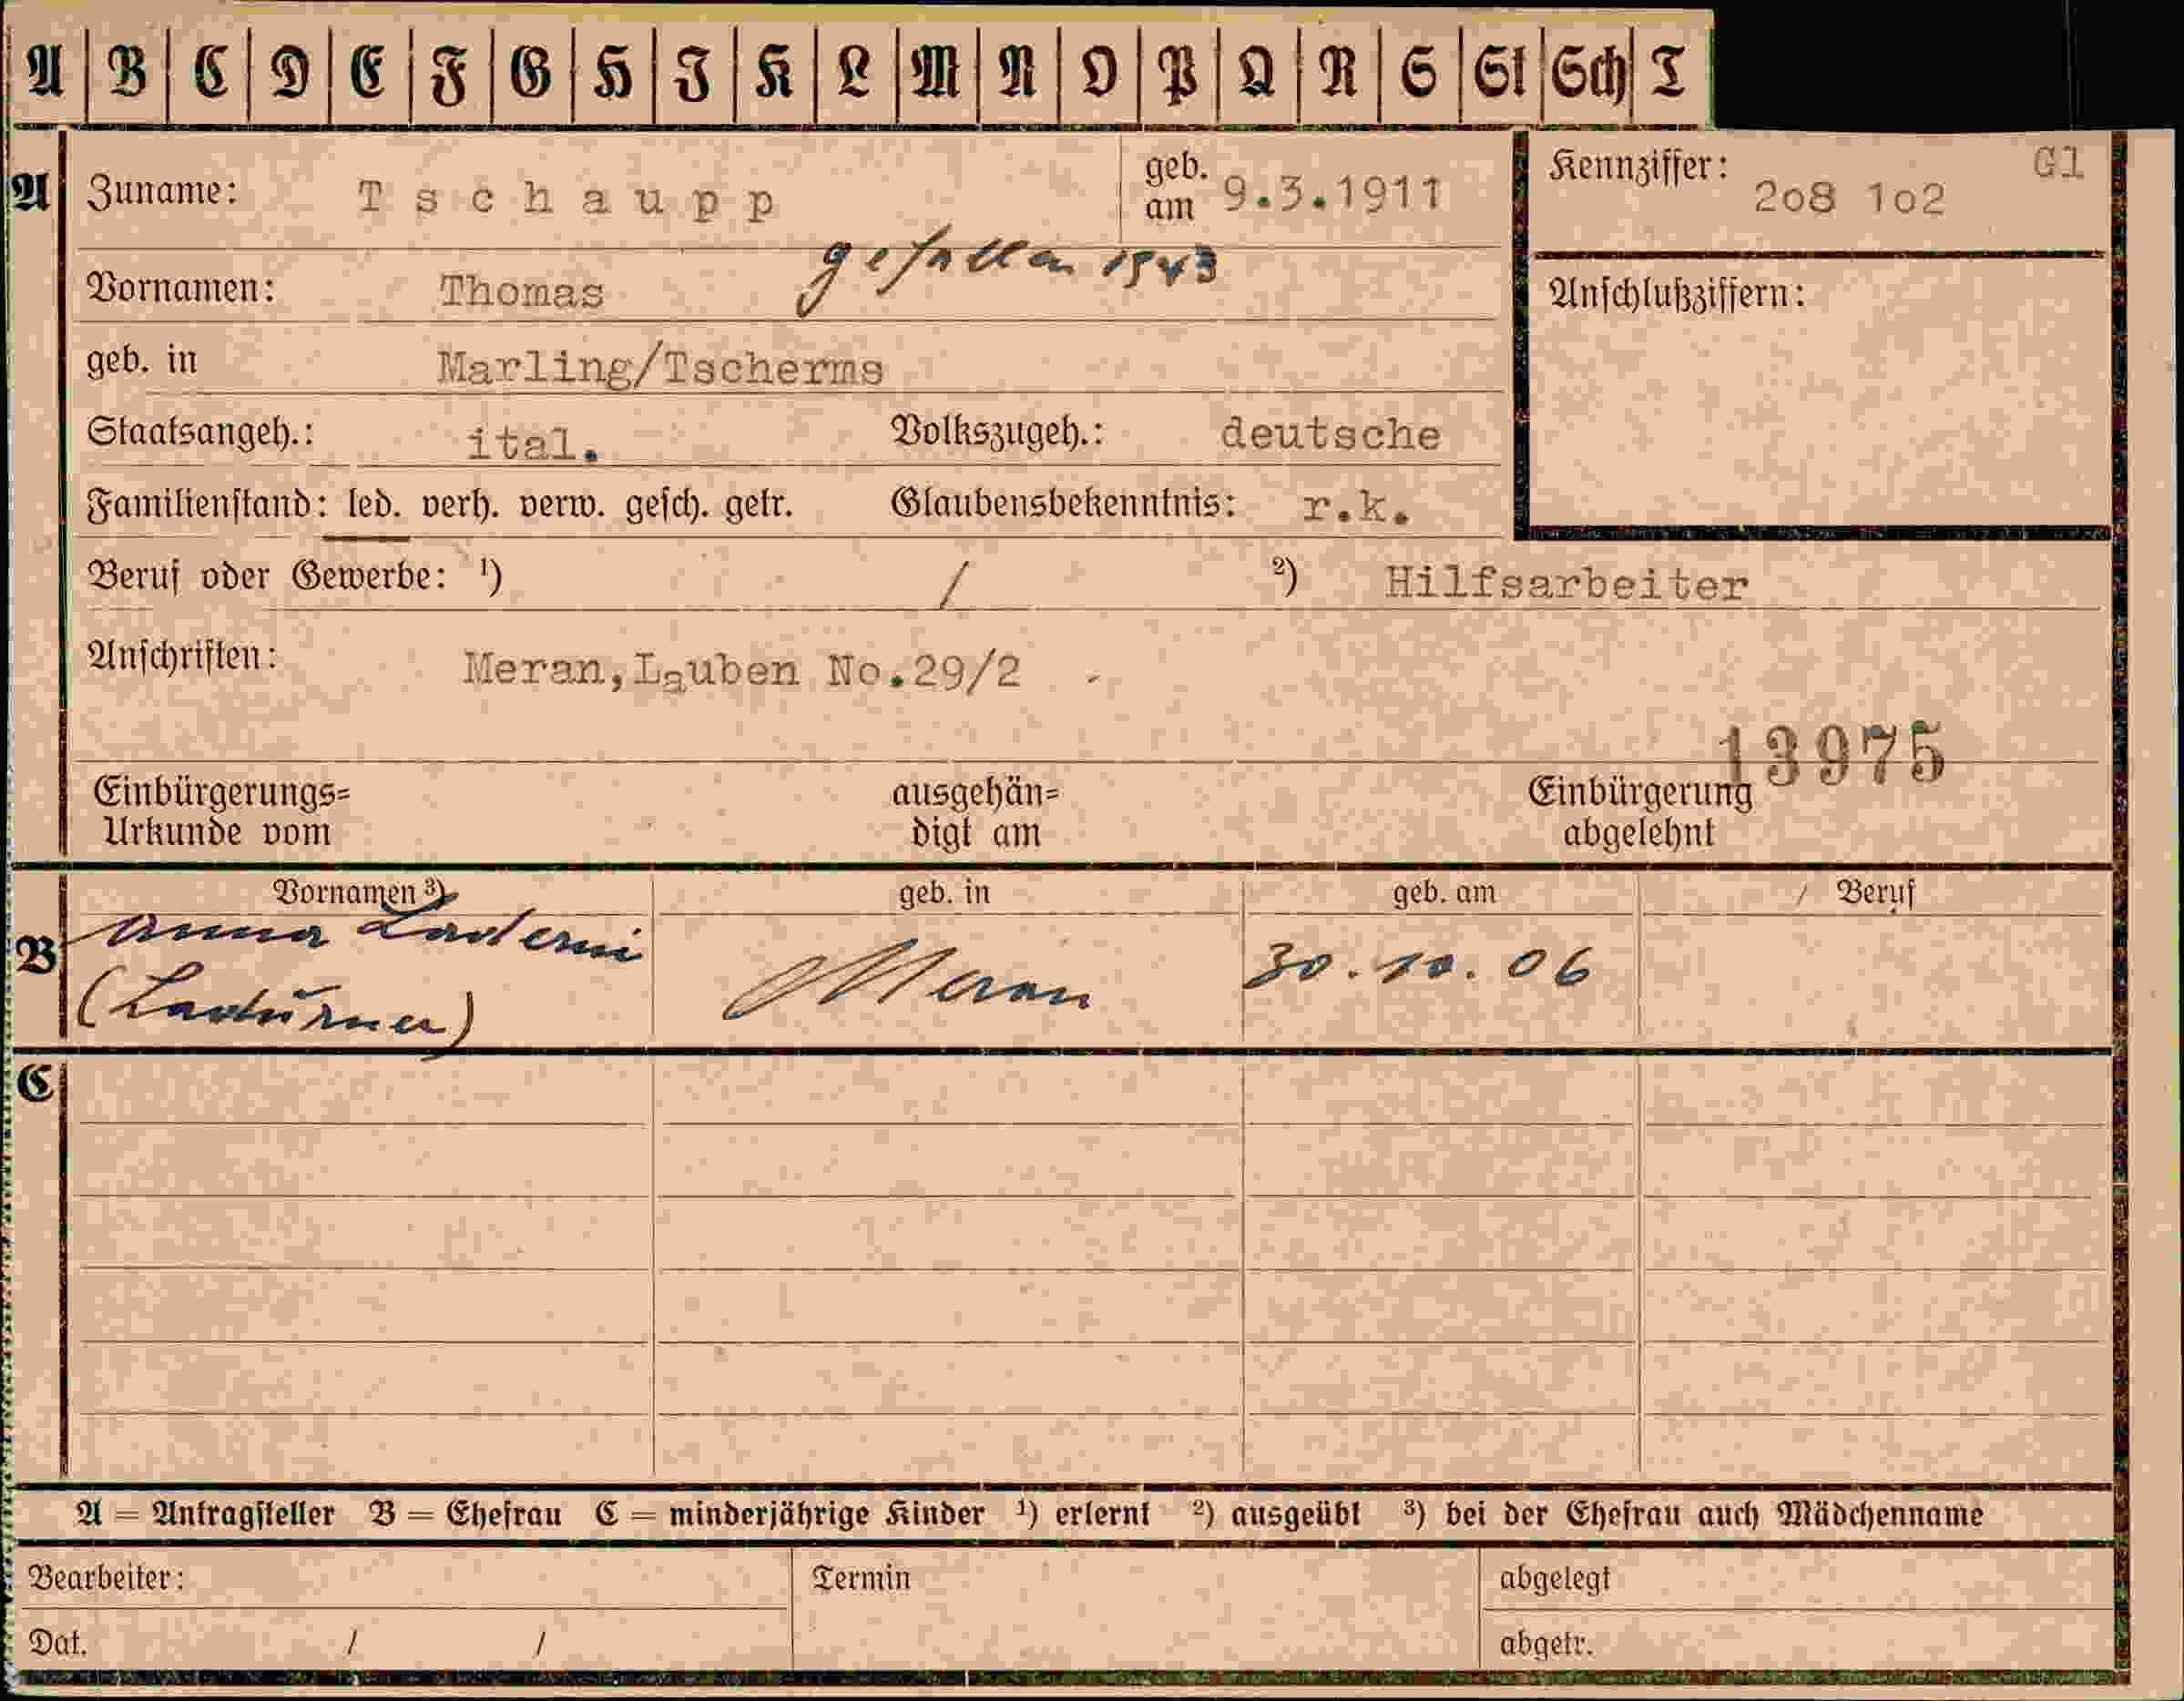 A B C D E F G H I K L M N O P Q R S St Sch T
A Zuname: Tschaupp geb. am 9.3.1911 Kennziffer: 2o8 1o2 Gl
gefallen 1943
Vornamen: Thomas Anschlußziffern:
geb. in Marling/Tscherms
Staatsangeh.: ital. Volkszugeh.: deutsche
Familienstand: led. verh. verw. gesch. getr. Glaubensbekenntnis: r.k.
Beruf oder Gewerbe: ¹) / ²) Hilfsarbeiter
Anschriften: Meran,Lauben No.29/2
13975
Einbürgerungs= ausgehän= Einbürgerung
Urkunde vom digt am abgelehnt
Vornamen ³) geb. in geb. am Beruf
B Anna Laderni Meran 30.10.06
(Ladurner)
C
A = Antragsteller B = Ehefrau C = minderjährige Kinder ¹) erlernt ²) ausgeübt ³) bei der Ehefrau auch Mädchenname
Bearbeiter: Termin abgelegt
Dat. / / abgetr.